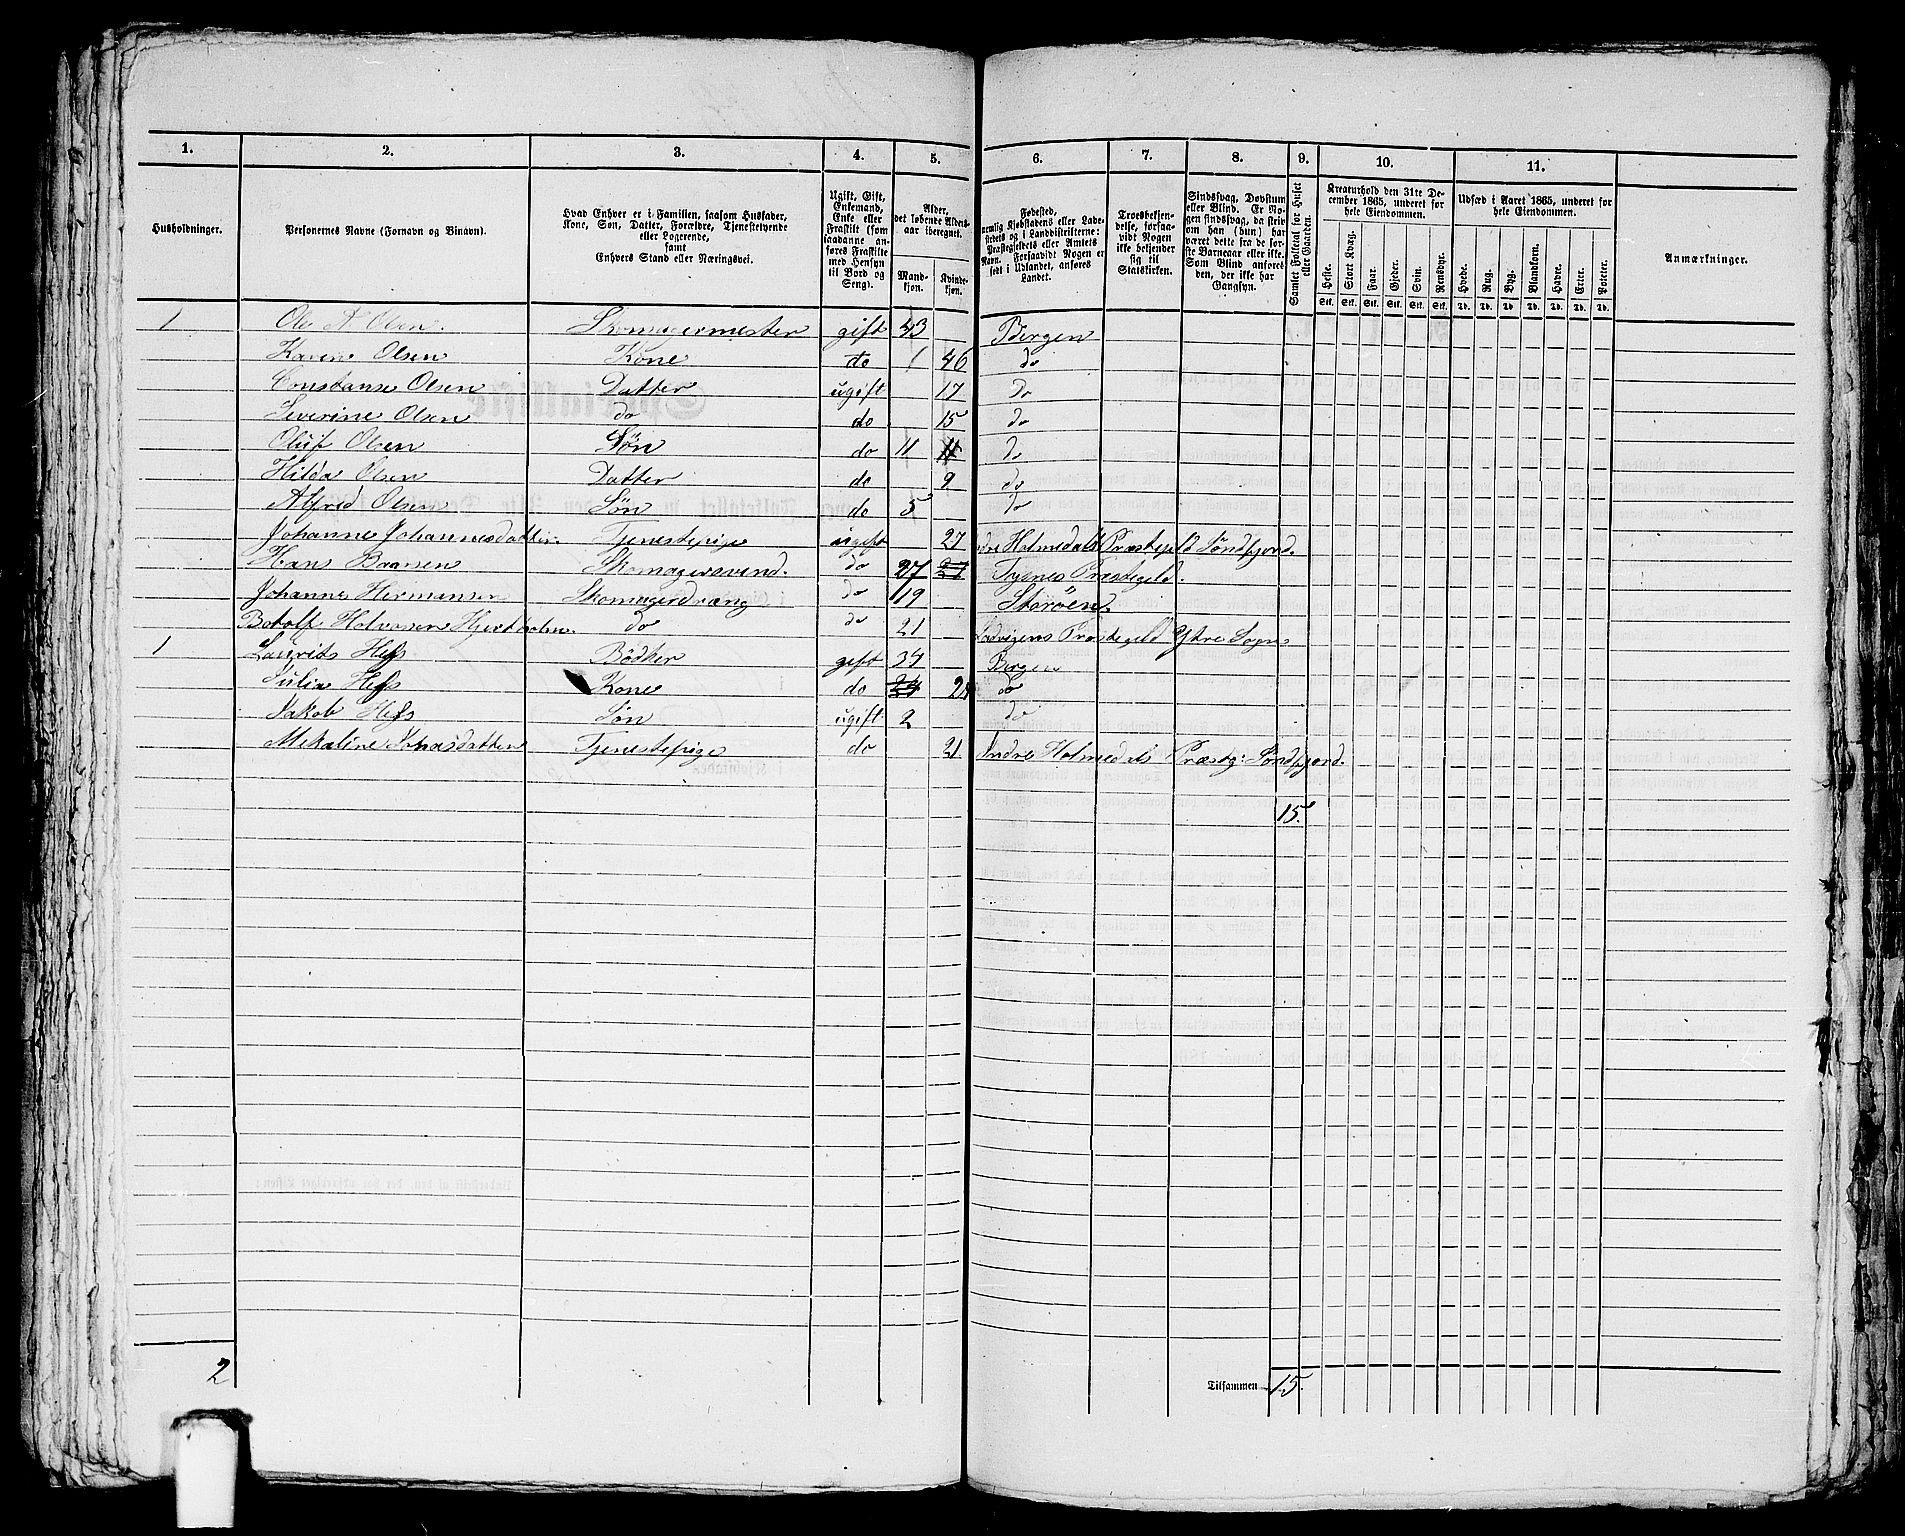 1. 2. 3. 4. 5. 6. 7. 8. 9. 10. 11.
Husholdninger.
Personernes Navne (Fornavn og Binavn).
Hvad Enhver er i Familien, saasom Husfader, Kone, Søn, Datter, Forældre, Tjenestetyende eller Logerende, samt Enhvers Stand eller Næringsvei.
Ugift, Gift, Enkemand, Enke eller Fraskilt (som saadanne anføres Fraskilte med Hensyn til Bord og Seng).
Alder, det løbende Aldersaar iberegnet.
Mandkjøn. Kvindekjøn.
Fødested, nemlig Kjøbstadens eller Ladestedets og i Landdistrikterne: Præstegjeldets eller Amtets Navn. Forsaavidt Nogen er født i Udlandet, anføres Landet.
Troesbekjendelse, forsaavidt Nogen ikke bekjender sig til Statskirken.
Sindssvag, Døvstum eller Blind. Er Nogen sindssvag, da skrives om han (hun) har været dette fra de første Barneaar eller ikke. Som Blind anføres den, der ikke har Gangsyn.
Samlet Folketal for Huset eller Gaarden.
Kreaturhold den 31te December 1865, underet for hele Eiendommen.
Heste. Stort Kvæg. Faar. Gjeder. Svin. Rensdyr.
Stk. Stk. Stk. Stk. Stk. Stk.
Udsæd i Aaret 1865, underet for hele Eiendommen.
Hvede. Rug. Byg. Blandkorn. Havre. Erter. Poteter.
Td. Td. Td. Td. Td. Td. Td.
Anmærkninger.
1 Ole A Olsen. Skomagermester gift 43 Bergen
Karen Olsen Kone do 46 do
Constanse Olsen Datter ugift 17 Do
Severine Olsen do do 15 do
Oluf Olsen Søn do 11 11 Do
Hilda Olsen Datter do 9 do
Alfred Olsen Søn do 5 do
Johanne Johannesdatter Tjenestepige ugift 27 Holmedals Præstegjeld Søndfjord.
Hans Skomagersvend. do 27 27 Tysnes Præstegjeld.
Johannes Hermansen Skomagerdræng do 19 Storöen.
Botolf do do 21 Præstegjeld Ytre Sogn
1 Laurits Hess Bödker gift 34 Bergen
Julia Hess Kone do 24 do
Jakob Hess Søn ugift 2 do
Mekaline Tjenestepige do 21 Indre Holmedals Præstg: Søndfjord.
15.
2
Tilsammen 15.